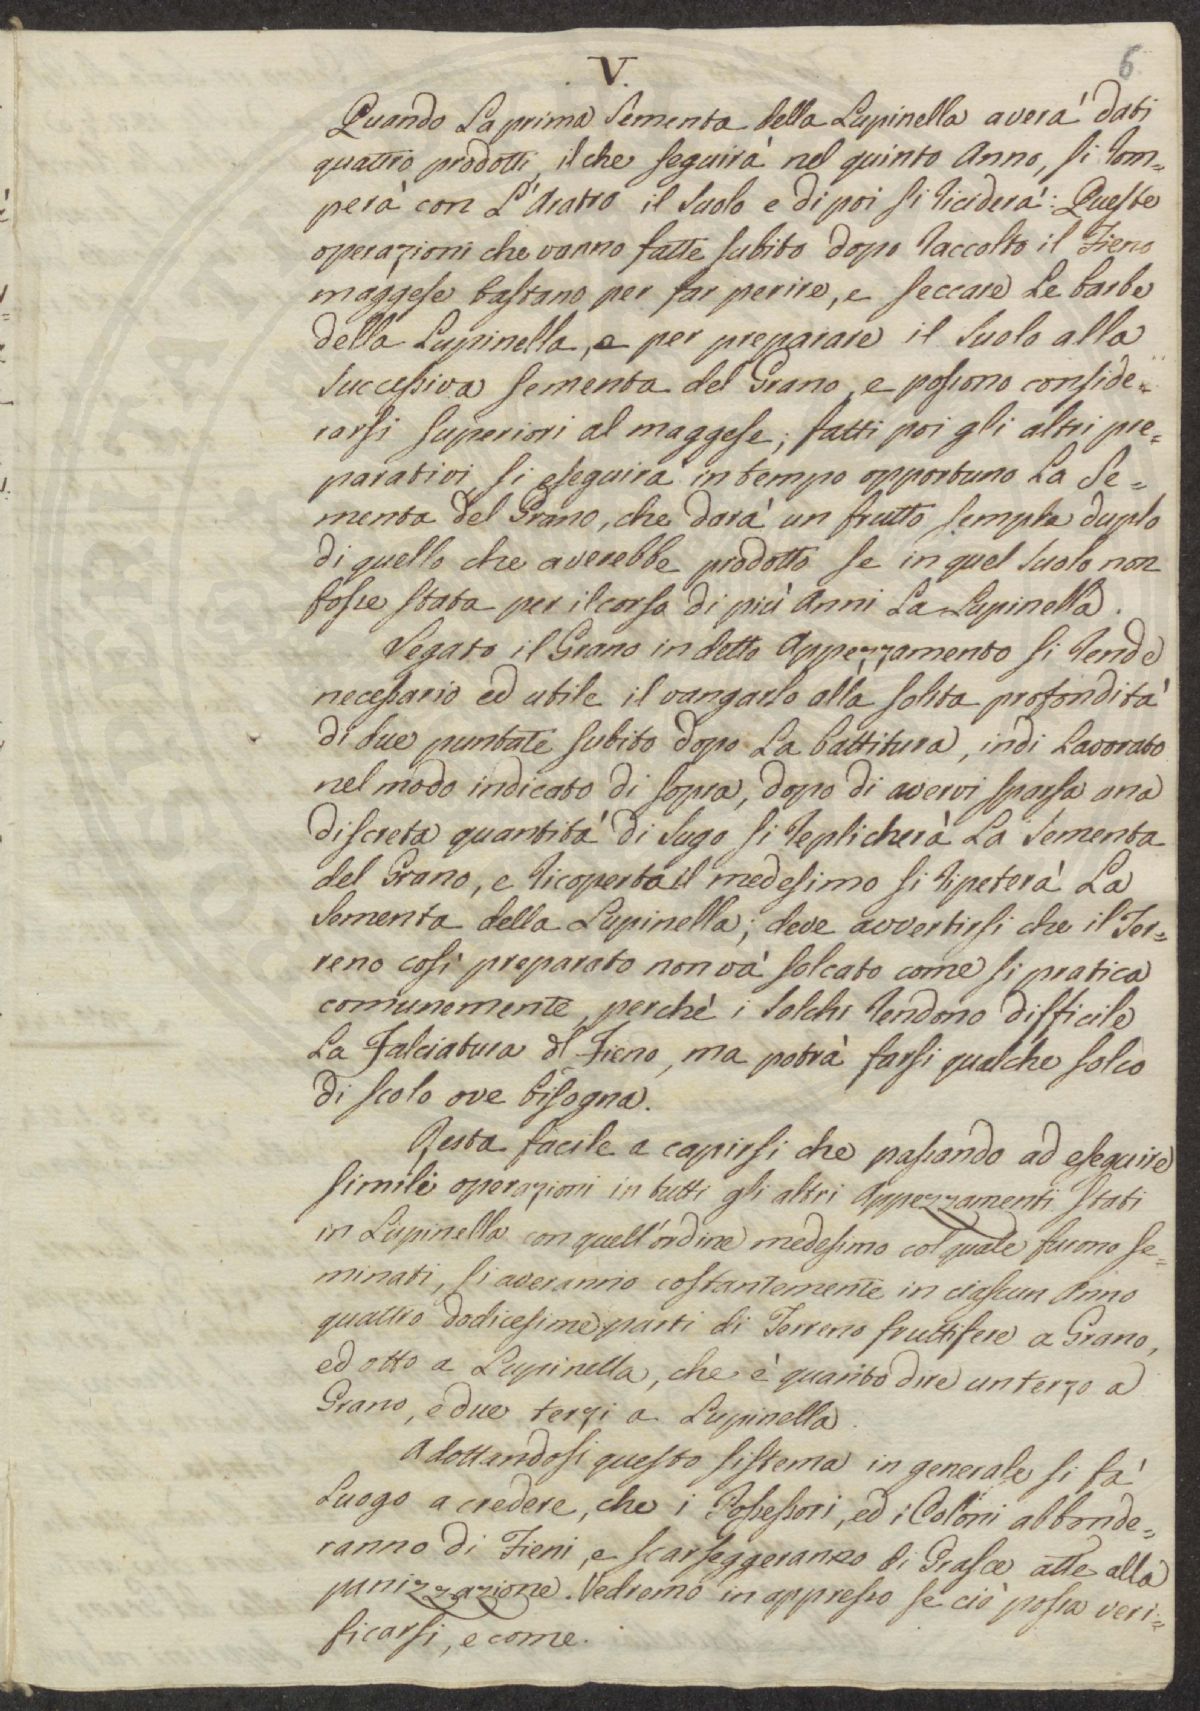 V.
6
Quando La prima Sementa della Lupinella averà dati
quattro prodotti, il che seguirà nel quinto Anno, si Rom=
perà con L'Aratro il Suolo e di poi si Riciderà: Queste
operazioni che vanno fatte subito dopo Raccolto il Fieno
maggese bastano per far perire, e seccare Le barbe
della Lupinella, e per preparare il Suolo alla
Successiva Sementa del Grano, e possono conside=
rarsi superiori al maggese; fatti poi gli altri pre=
parativi si eseguirà in tempo opportuno La Se=
menta del Grano, che darà un frutto sempre duplo
di quello che averebbe prodotto se in quel Suolo non
fosse stata per il corso di più Anni La Lupinella.
Segato il Grano in detto Appezzamento si Rende
necessario ed utile il vangarlo alla solita profondità
di due puntate subito dopo La battitura, indi Lavorato
nel modo indicato di sopra, dopo di avervi sparsa una
discreta quantità di Sugo si Replicherà La Sementa
del Grano, e Ricoperto il medesimo si Ripeterà La
Sementa della Lupinella; deve avvertirsi che il Ter=
reno così preparato non và solcato come si pratica
comunemente, perchè i Solchi Rendono difficile
La Falciatura del Fieno, ma potrà farsi qualche solco
di scolo ove bisogna.
Resta facile a capirsi che passando ad eseguire
simili operazioni in tutti gli altri Appezzamenti stati
in Lupinella con quell'ordine medesimo col quale furono se=
minati, si averanno costantemente in ciascun Anno
quattro dodicesime parti di Terreno fruttifere a Grano,
ed otto a Lupinella, che è quanto dire un terzo a
Grano, e due terzi a Lupinella.
Adottandosi questo sistema in generale si fà
Luogo a credere, che i Possessori, ed i Coloni abbonde=
ranno di Fieni, e scarseggeranno di Grasce atte alla
panizzazione. Vedremo in appresso se ciò possa veri=
ficarsi, e come.